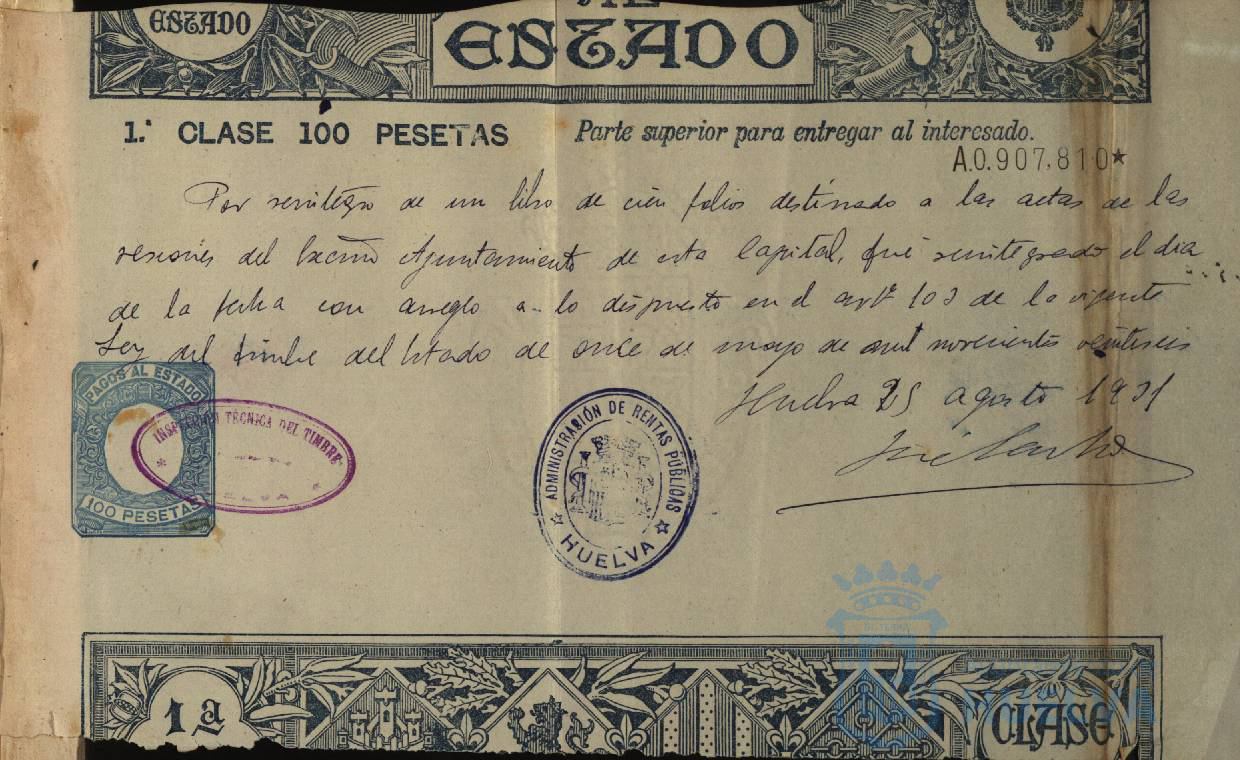 ESTADO
ESTADO
1.ª CLASE 100 PESETAS
Parte superior para entregar al interesado.
A.0.907.810★
Por reintegro de un libro de cien folios destinado a las actas de las
sesiones del Excmo Ayuntamiento de esta Capital, que reintegrado el dia
de la fecha con arreglo a lo dispuesto en el artº 103 de la vigente
Ley del timbre del Estado de once de mayo de mil novecientos veintiseis
Huelva 25 agosto 1931
José
PAGOS AL ESTADO
100 PESETAS
INSPECCION TECNICA DEL TIMBRE
HUELVA
ADMINISTRACIÓN DE RENTAS PÚBLICAS
HUELVA
1ª
CLASE